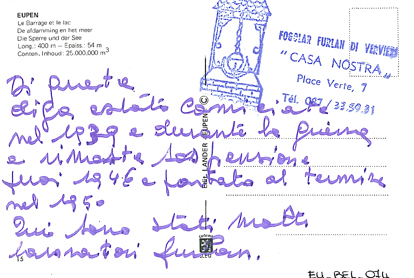 EUPEN
Le Barrage et le lac
De afdamming en het meer
Die Sperre und der See
Long.: 400 m — Epaiss.: 54 m
Conten. Inhoud: 25.000.000 m³
FOGOLAR FURLAN DI VERVIERS
"CASA NOSTRA"
Place Verte, 7
Tél. 087 / 33.50.31
Di questa
diga è stato cominciata
nel 1939 e durante la guerra
è rimasta sospensione
fuoi 1946 e portato al termine
nel 1950
Qui sono stati molti
lavoratori furlan.
EUPEN ©
15
EU_BEL_074